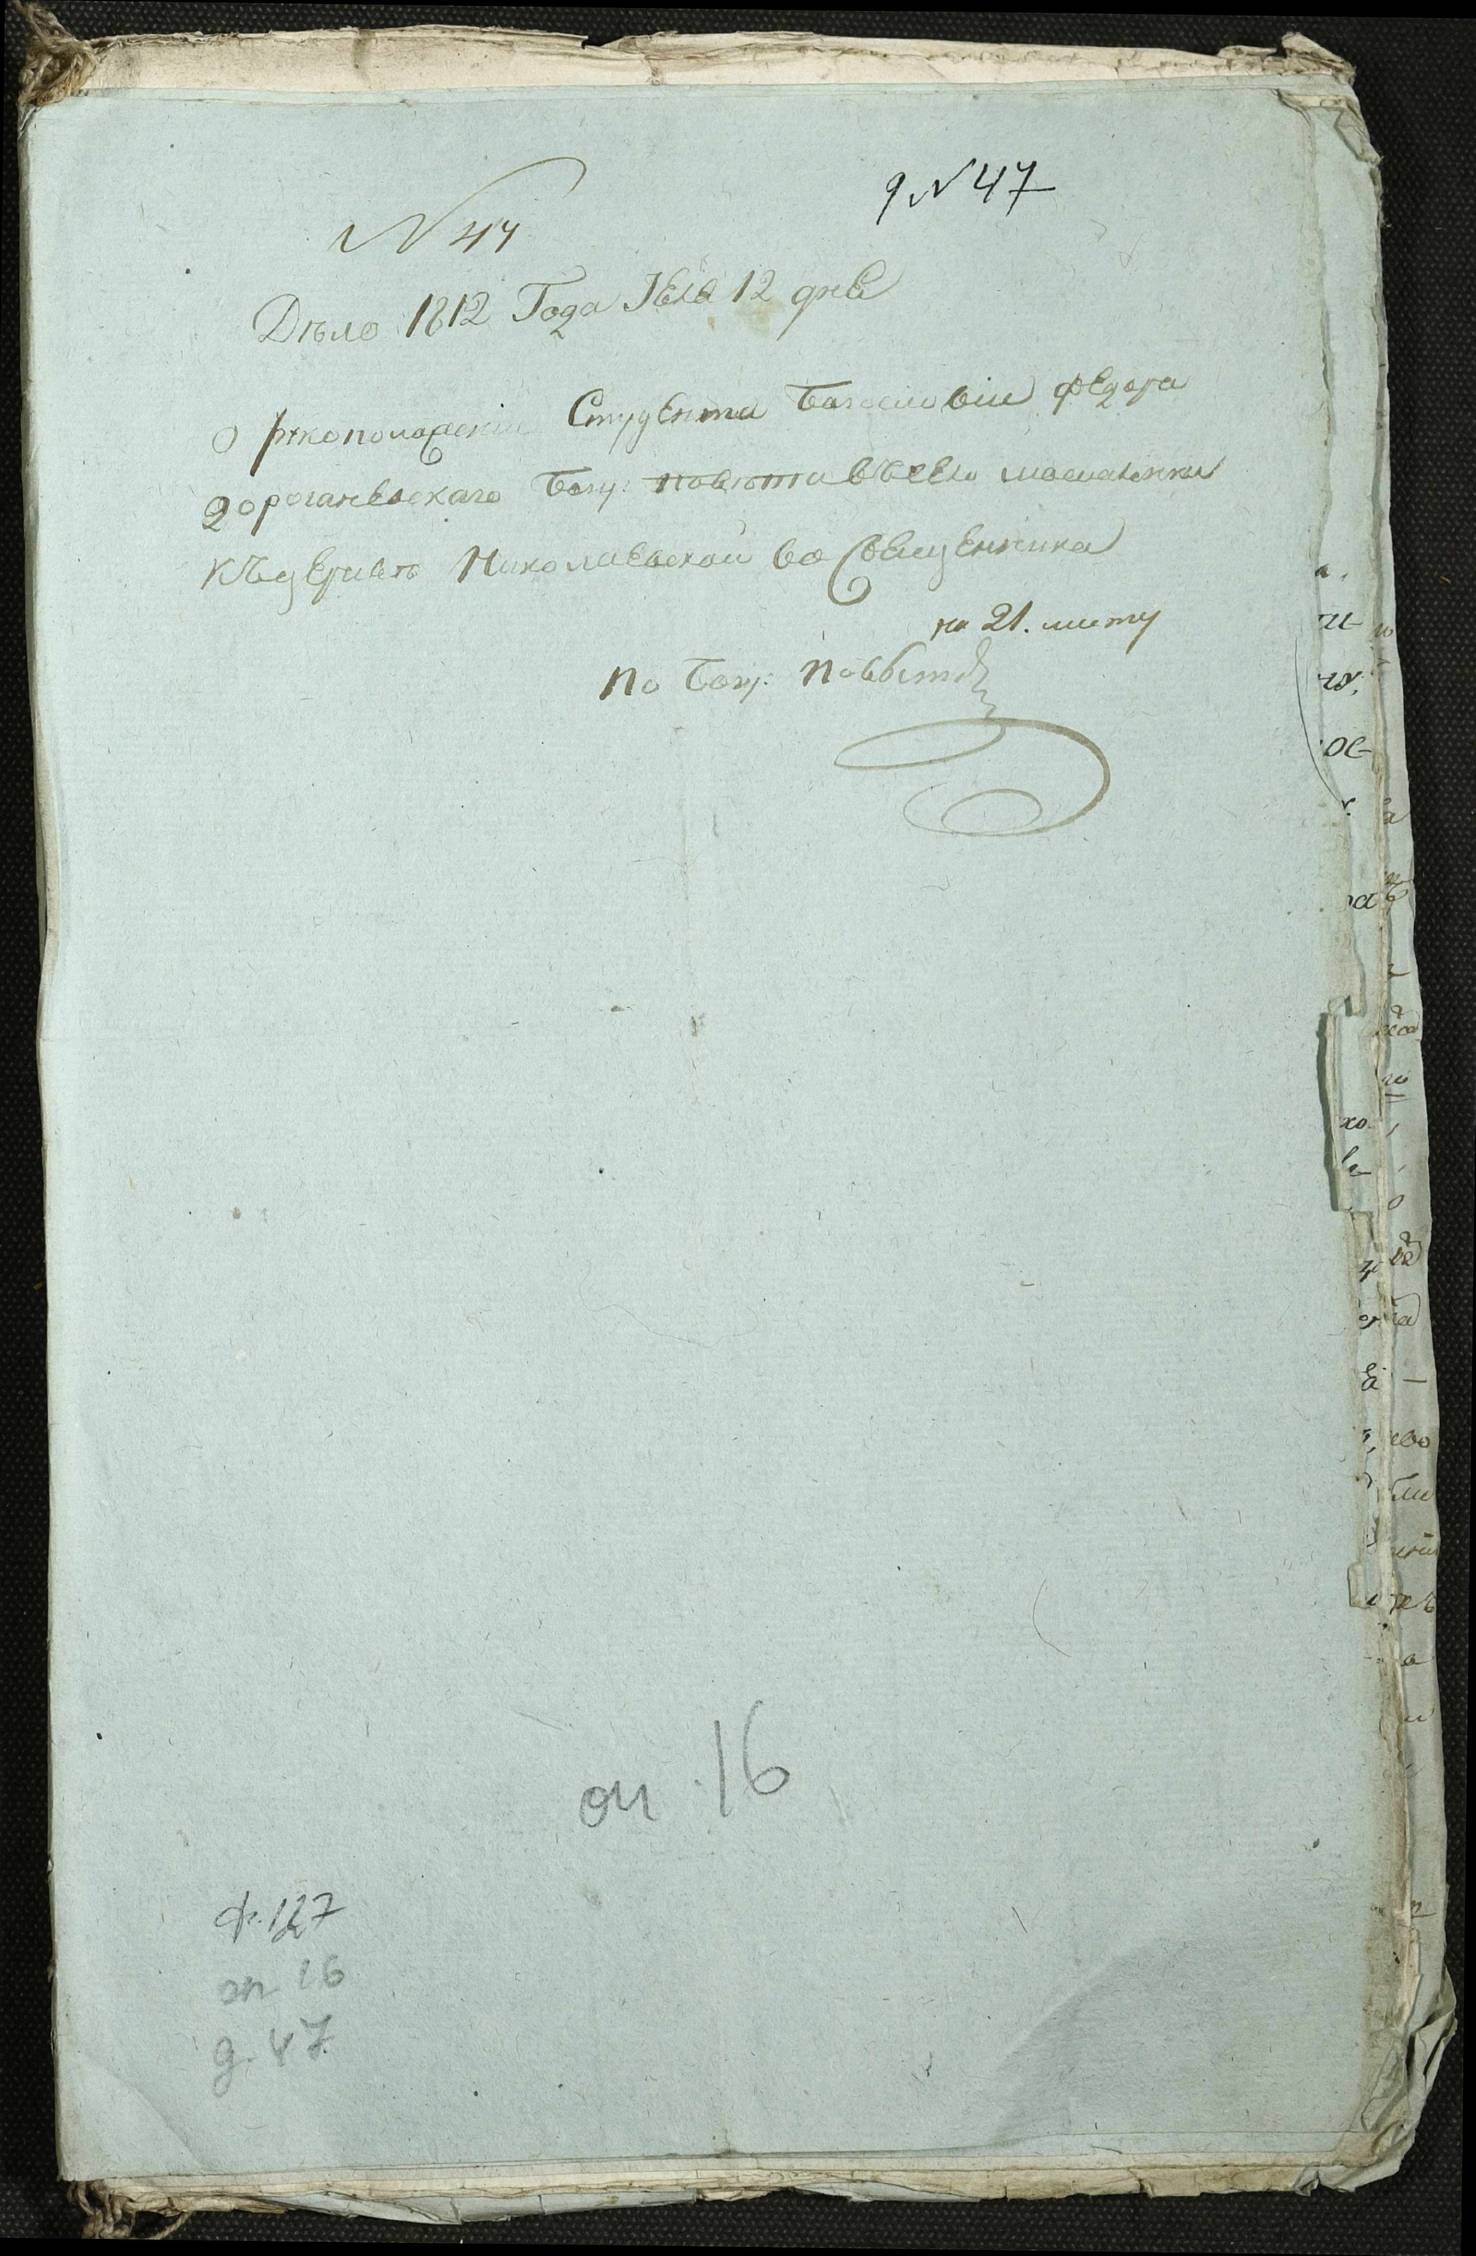 N 47
9 N 47
Дѣло 1812 Года Іюля 12 дня
О рукоположеніи Студента Богословіи Федора
Дорошевскаго Богу: повѣта въ село
къ церквѣ Николаевской во священника
на 21. листу
По Богу: Повѣту
оп 16
ф. 127
оп 16
д. 47